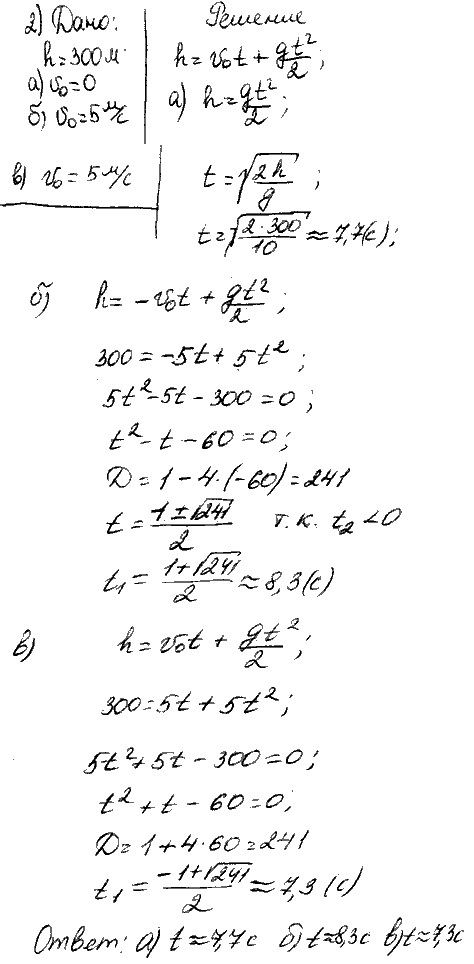 2) Дано:
h=300м
а) v₀=0
б) v₀=5 м/с
в) v₀=5 м/с
Решение
h=v₀t + gt²/2;
а) h=gt²/2;
t=√(2h/g);
t=√(2·300/10)≈7,7(с);
б) h=-v₀t+gt²/2;
300=-5t+5t²;
5t²-5t-300=0;
t²-t-60=0;
D=1-4·(-60)=241
t=(1±√241)/2 т.к. t₂<0
t₁=(1+√241)/2≈8,3(с)
в) h=v₀t+gt²/2;
300=5t+5t²;
5t²+5t-300=0;
t²+t-60=0;
D=1+4·60=241
t₁=(-1+√241)/2≈7,3(с)
Ответ: а) t≈7,7с б) t≈8,3с в) t≈7,3с